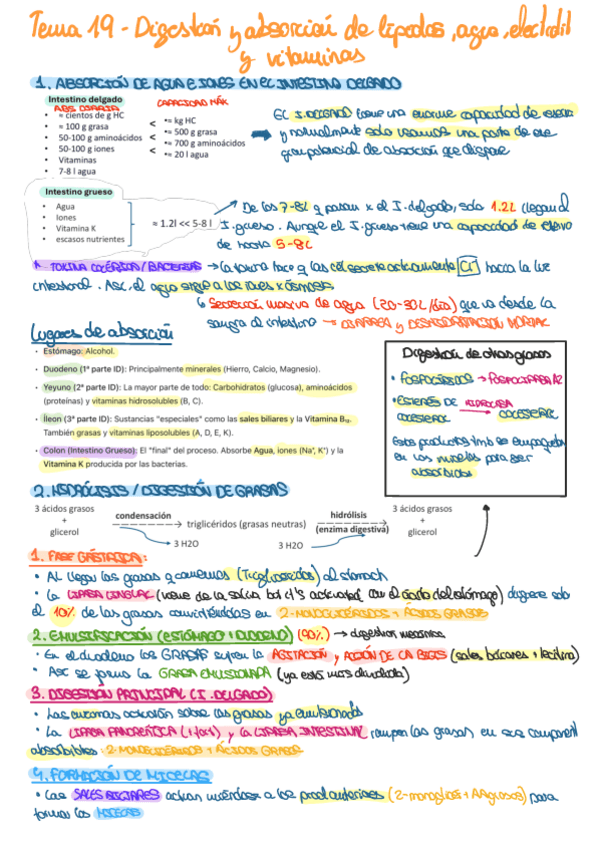 Tema 19 - Digestión y absorción de lípidos, agua, electrolit
y vitaminas
1. ABSORCIÓN DE AGUA E IONES EN EL INTESTINO DELGADO
Intestino delgado
ABS. DIARIA
CAPACIDAD MÁX
• ≈ cientos de g HC
• ≈ 100 g grasa
• 50-100 g aminoácidos
• 50-100 g iones
• Vitaminas
• 7-8 l agua
<
<
<
•≈ kg HC
•≈ 500 g grasa
•≈ 700 g aminoácidos
•≈ 20 l agua
El I.DELGADO tiene una enorme capacidad de
y normalmente solo usamos una parte de ese
gran potencial de absorción que dispone
Intestino grueso
• Agua
• Iones
• Vitamina K
• escasos nutrientes
≈ 1.2l << 5-8 l
De los 7-8L q pasan x el I.delgado, solo 1.2L llegan al
I.grueso. Aunque el I.grueso tiene una capacidad de
de hasta 5-8L
TOXINA COLÉRICA/BACTERIAS → La toxina hace q las cél secreten activamente Cl⁻ hacia la luz
intestinal. Así, el agua sigue a los iones x ósmosis
↳ Secreción masiva de agua (20-30L/día) que va desde la
sangre al intestino → DIARREA y DESHIDRATACIÓN MORTAL
Lugares de absorción
• Estómago: Alcohol.
• Duodeno (1ª parte ID): Principalmente minerales (Hierro, Calcio, Magnesio).
• Yeyuno (2ª parte ID): La mayor parte de todo: Carbohidratos (glucosa), aminoácidos
(proteínas) y vitaminas hidrosolubles (B, C).
• Íleon (3ª parte ID): Sustancias "especiales" como las sales biliares y la Vitamina B₁₂.
También grasas y vitaminas liposolubles (A, D, E, K).
• Colon (Intestino Grueso): El "final" del proceso. Absorbe Agua, iones (Na⁺, K⁺) y la
Vitamina K producida por las bacterias.
Digestión de otras grasas
• FOSFOLÍPIDOS → FOSFOLIPASA A2
• ESTERES DE COLESTEROL
HIDROLASA
COLESTEROL
Estos productos tmb se empaquetan
en las micelas para ser
absorbidos
2. HIDRÓLISIS / DIGESTIÓN DE GRASAS
3 ácidos grasos
+
glicerol
condensación
triglicéridos (grasas neutras)
hidrólisis
(enzima digestiva)
3 ácidos grasos
+
glicerol
3 H2O
3 H2O
1. FASE GÁSTRICA:
• Al llegar las grasas q comemos (Triglicéridos) al stomach
• La LIPASA LINGUAL (viene de la saliva but es activada con el ácido del stómago) digiere solo
el 10% de las grasas convirtiéndolas en 2-MONOGLICÉRIDOS + ÁCIDOS GRASOS
2. EMULSIFICACIÓN (ESTÓMAGO + DUODENO) (90%) → digestión mecánica
• En el duodeno las GRASAS sufren la AGITACIÓN y ACCIÓN DE LA BILIS (sales biliares + lecitina)
• Así se forma la GRASA EMULSIONADA (ya está más dividida)
3. DIGESTIÓN PRINCIPAL (I. DELGADO)
• Las enzimas actúan sobre las grasas ya emulsionada
• La LIPASA PANCREÁTICA y la LIPASA INTESTINAL rompen las grasas en sus component
absorbibles: 2-MONOGLICÉRIDOS + ÁCIDOS GRASOS
4. FORMACIÓN DE MICELAS
• Las SALES BILIARES actúan uniéndose a los prod anteriores (2-monoglic + AAgrasos) para
formar las MICELAS